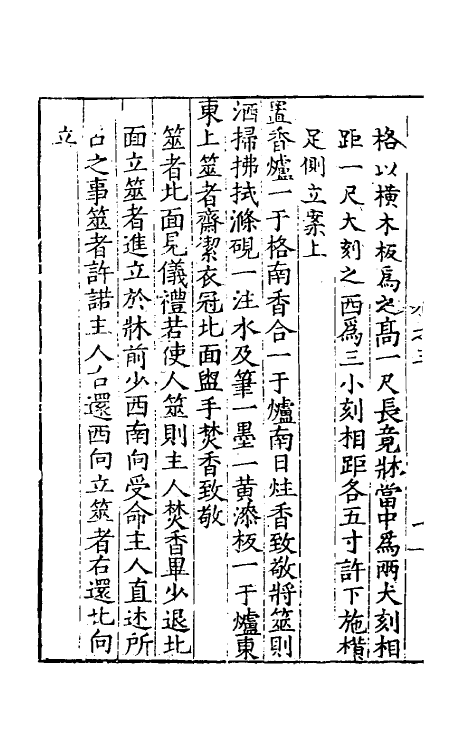 格以橫木板爲之高一尺長竟牀當中爲兩大刻相
距一尺大刻之西爲三小刻相距各五寸許下施橫
足側立案上
置香爐一于格南香合一于爐南日炷香致敬將筮則
洒掃拂拭滌硯一注水及筆一墨一黃漆板一于爐東
東上筮者齋潔衣冠北面盥手焚香致敬
筮者北面見儀禮若使人筮則主人焚香畢少退北
面立筮者進立於牀前少西南向受命主人直述所
占之事筮者許諾主人右還西向立筮者右還北向
立